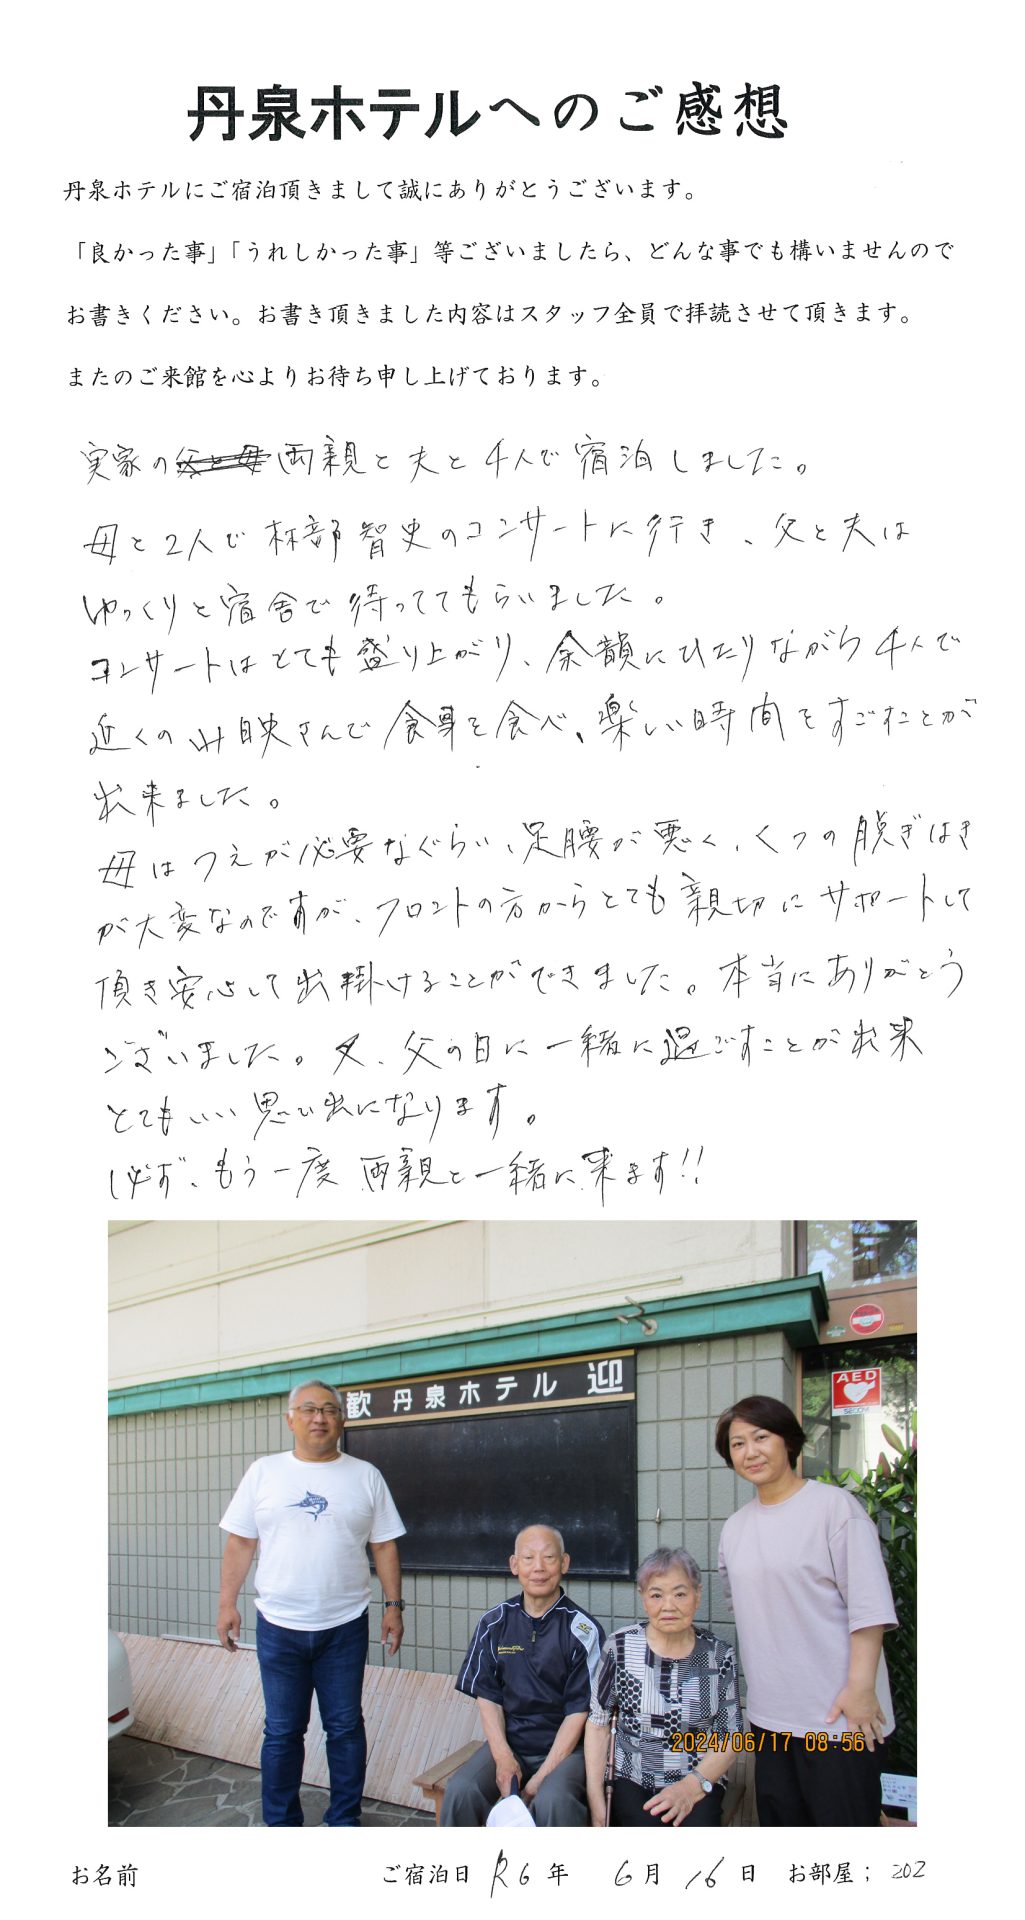 丹泉ホテルへのご感想
丹泉ホテルにご宿泊頂きまして誠にありがとうございます。
「良かった事」「うれしかった事」等ございましたら、どんな事でも構いませんので
お書きください。お書き頂きました内容はスタッフ全員で拝読させて頂きます。
またのご来館を心よりお待ち申し上げております。
実家の父と母両親と夫と4人で宿泊しました。
母と2人で林部智史のコンサートに行き、父と夫は
ゆっくりと宿舎で待っててもらいました。
コンサートはとても盛り上がり、余韻にひたりながら4人で
近くの山映さんで食事を食べ、楽しい時間をすごすことが
出来ました。
母はつえが必要なぐらい、足腰が悪く、くつの脱ぎはき
が大変なのですが、フロントの方からとても親切にサポートして
頂き安心して出掛けることができました。本当にありがとう
ございました。又、父の日に一緒に過ごすことが出来
とてもいい思い出になります。
必ず、もう一度両親と一緒に来ます!!
歓 丹泉ホテル 迎
AED
SECOM
2024/06/17 08:56
お名前 ご宿泊日 R6年 6月 16日 お部屋; 202